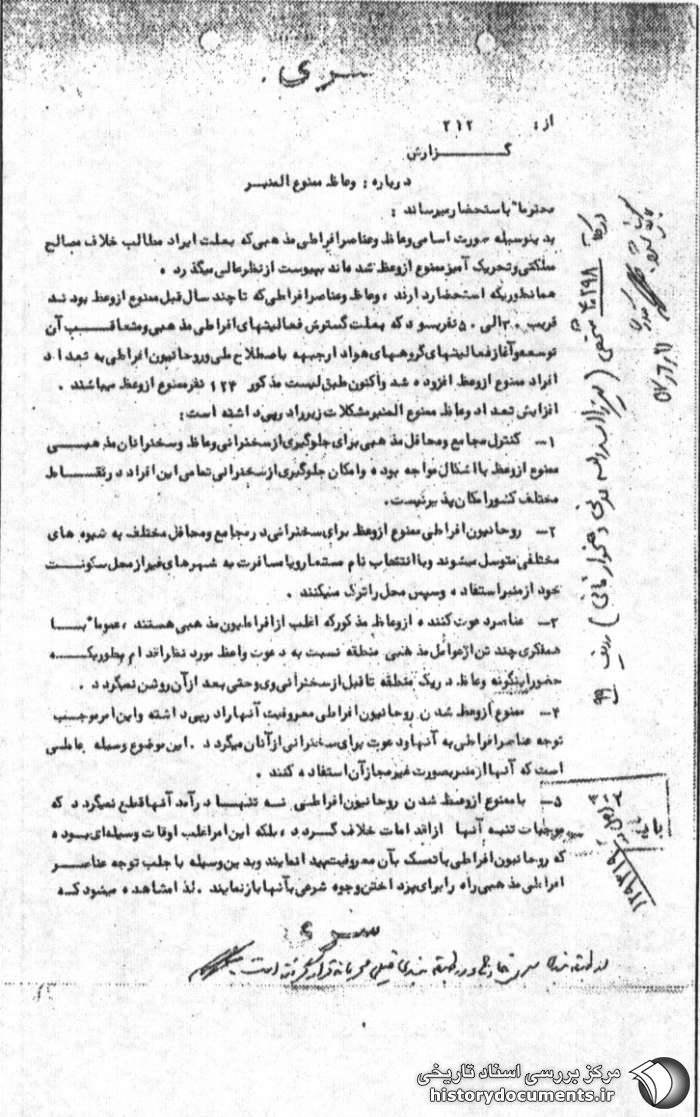 سری
از : ۳۱۲
گـــــزارش
درباره : وعاظ ممنوع المنبر
محترما" باستحضار میرساند :
بدینوسیله صورت اسامی وعاظ و عناصر افراطی مذهبی که بعلت ایراد مطالب خلاف مصالح
مملکتی و تحریک آمیز ممنوع از وعظ شده اند بپیوست از نظر عالی میگذرد .
همانطوریکه استحضار دارند ، وعاظ و عناصر افراطی که تا چند سال قبل ممنوع از وعظ بودند
قریب ۳۰ الی ۵۰ نفر بود که بعلت گسترش فعالیتهای افراطی مذهبی و متعاقب آن
توسعه و آغاز فعالیتهای گروههای هوادار جبهه باصطلاح ملی و روحانیون افراطی به تعداد
افراد ممنوع از وعظ افزوده شد و اکنون طبق لیست مذکور ۱۲۴ نفر ممنوع از وعظ میباشند .
افزایش تعداد وعاظ ممنوع المنبر مشکلات زیر را در پی داشته است :
۱ــ کنترل مجامع و محافل مذهبی برای جلوگیری از سخنرانی وعاظ و سخنرانان مذهبی
ممنوع از وعظ با اشکال مواجه بوده و امکان جلوگیری از سخنرانی تمامی این افراد در نقاط
مختلف کشور امکان پذیر نیست.
۲ــ روحانیون افراطی ممنوع از وعظ برای سخنرانی در مجامع و محافل مختلف به شیوه های
مختلفی متوسل میشوند و با انتخاب نام مستعار و یا مسافرت به شهرهای غیر از محل سکونت
خود از منبر استفاده و سپس محل را ترک مینکنند .
۳ــ عناصر دعوت کننده از وعاظ مذکور که اغلب از افراطیون مذهبی هستند ، عموما" با
همفکری چند تن از عوامل مذهبی منطقه نسبت به دعوت واعظ مورد نظر اقدام بطوریکه
حضور اینگونه وعاظ در یک منطقه تا قبل از سخنرانی وی و حتی بعد از آن روشن نمیگردد .
۴ــ ممنوع از وعظ شدن روحانیون افراطی معروفیت آنها را در پی داشته و این امر موجب
توجه عناصر افراطی به آنها و دعوت برای سخنرانی از آنان میگردد . این موضوع وسیله عاملی
است که آنها از منبر بصورت غیر مجاز آن استفاده کنند .
۵ــ با ممنوع از وعظ شدن روحانیون افراطی نه تنها درآمد آنها قطع نمیگردد که
موجبات تنبه آنها از اقدامات خلاف گردد ، بلکه این امر اغلب اوقات وسیله ای بوده
که روحانیون افراطی با تمسک بآن معروفیت پیدا نمایند و بدین وسیله با جلب توجه عناصر
افراطی مذهبی راه را برای پرداختن وجوه شرعی بآنها باز نمایند . لذا مشاهده میشود که
سری
مرکز بررسی اسناد تاریخی
historydocuments.ir